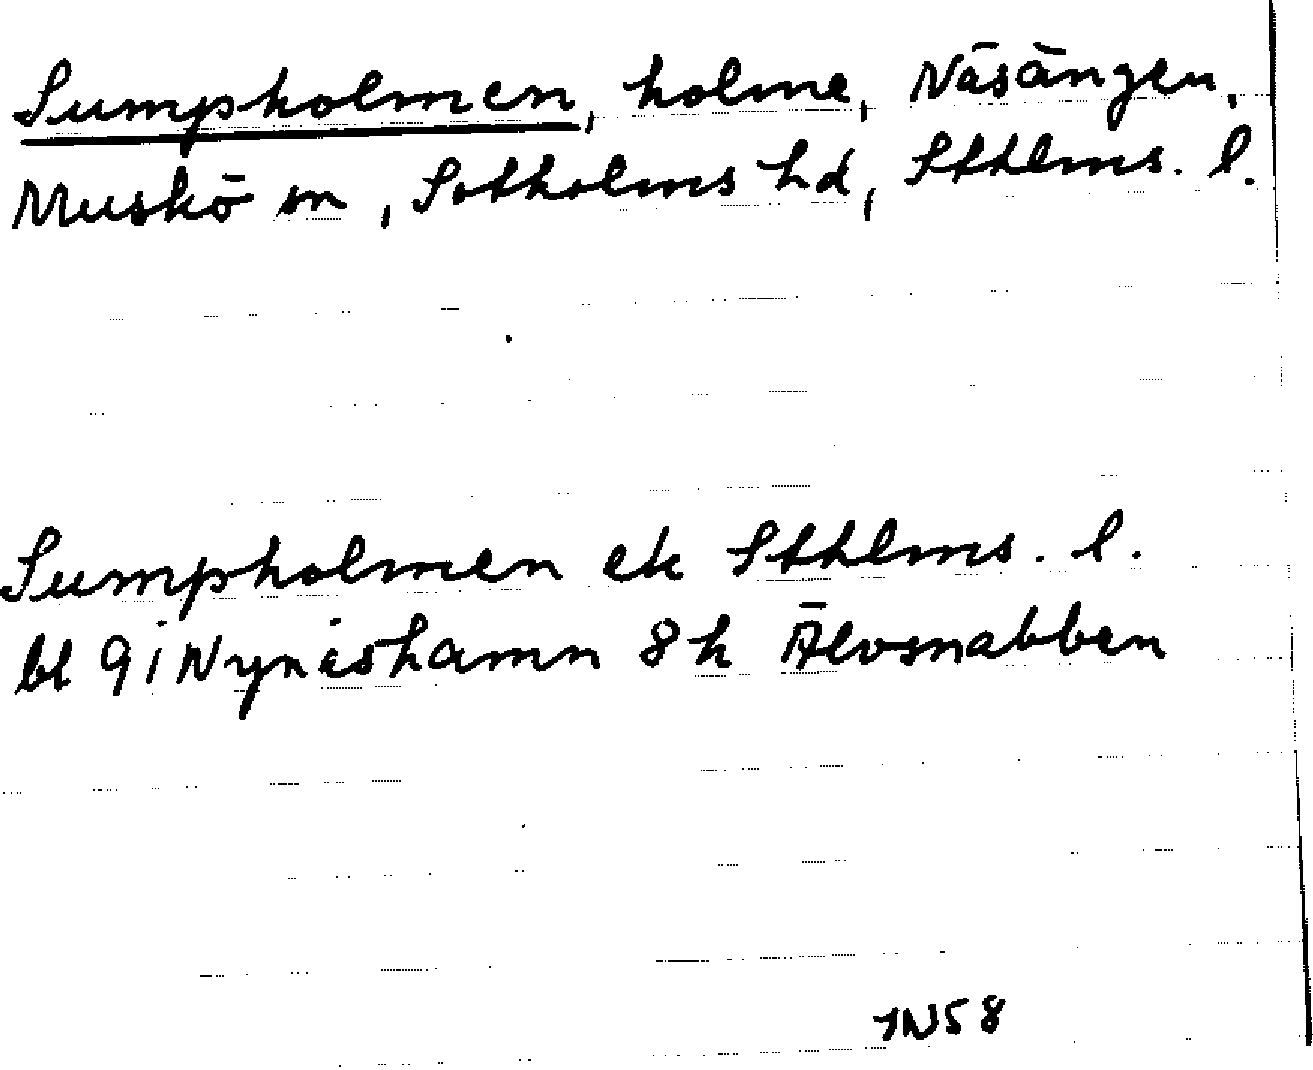 Sumpholmen, holme, Näsängen,
Muskö sn, Sotholms hd, Sthlms. l.
Sumpholmen ek Sthlms. l.
bl 9 i Nynäshamn 8h Älvsnabben
IN58